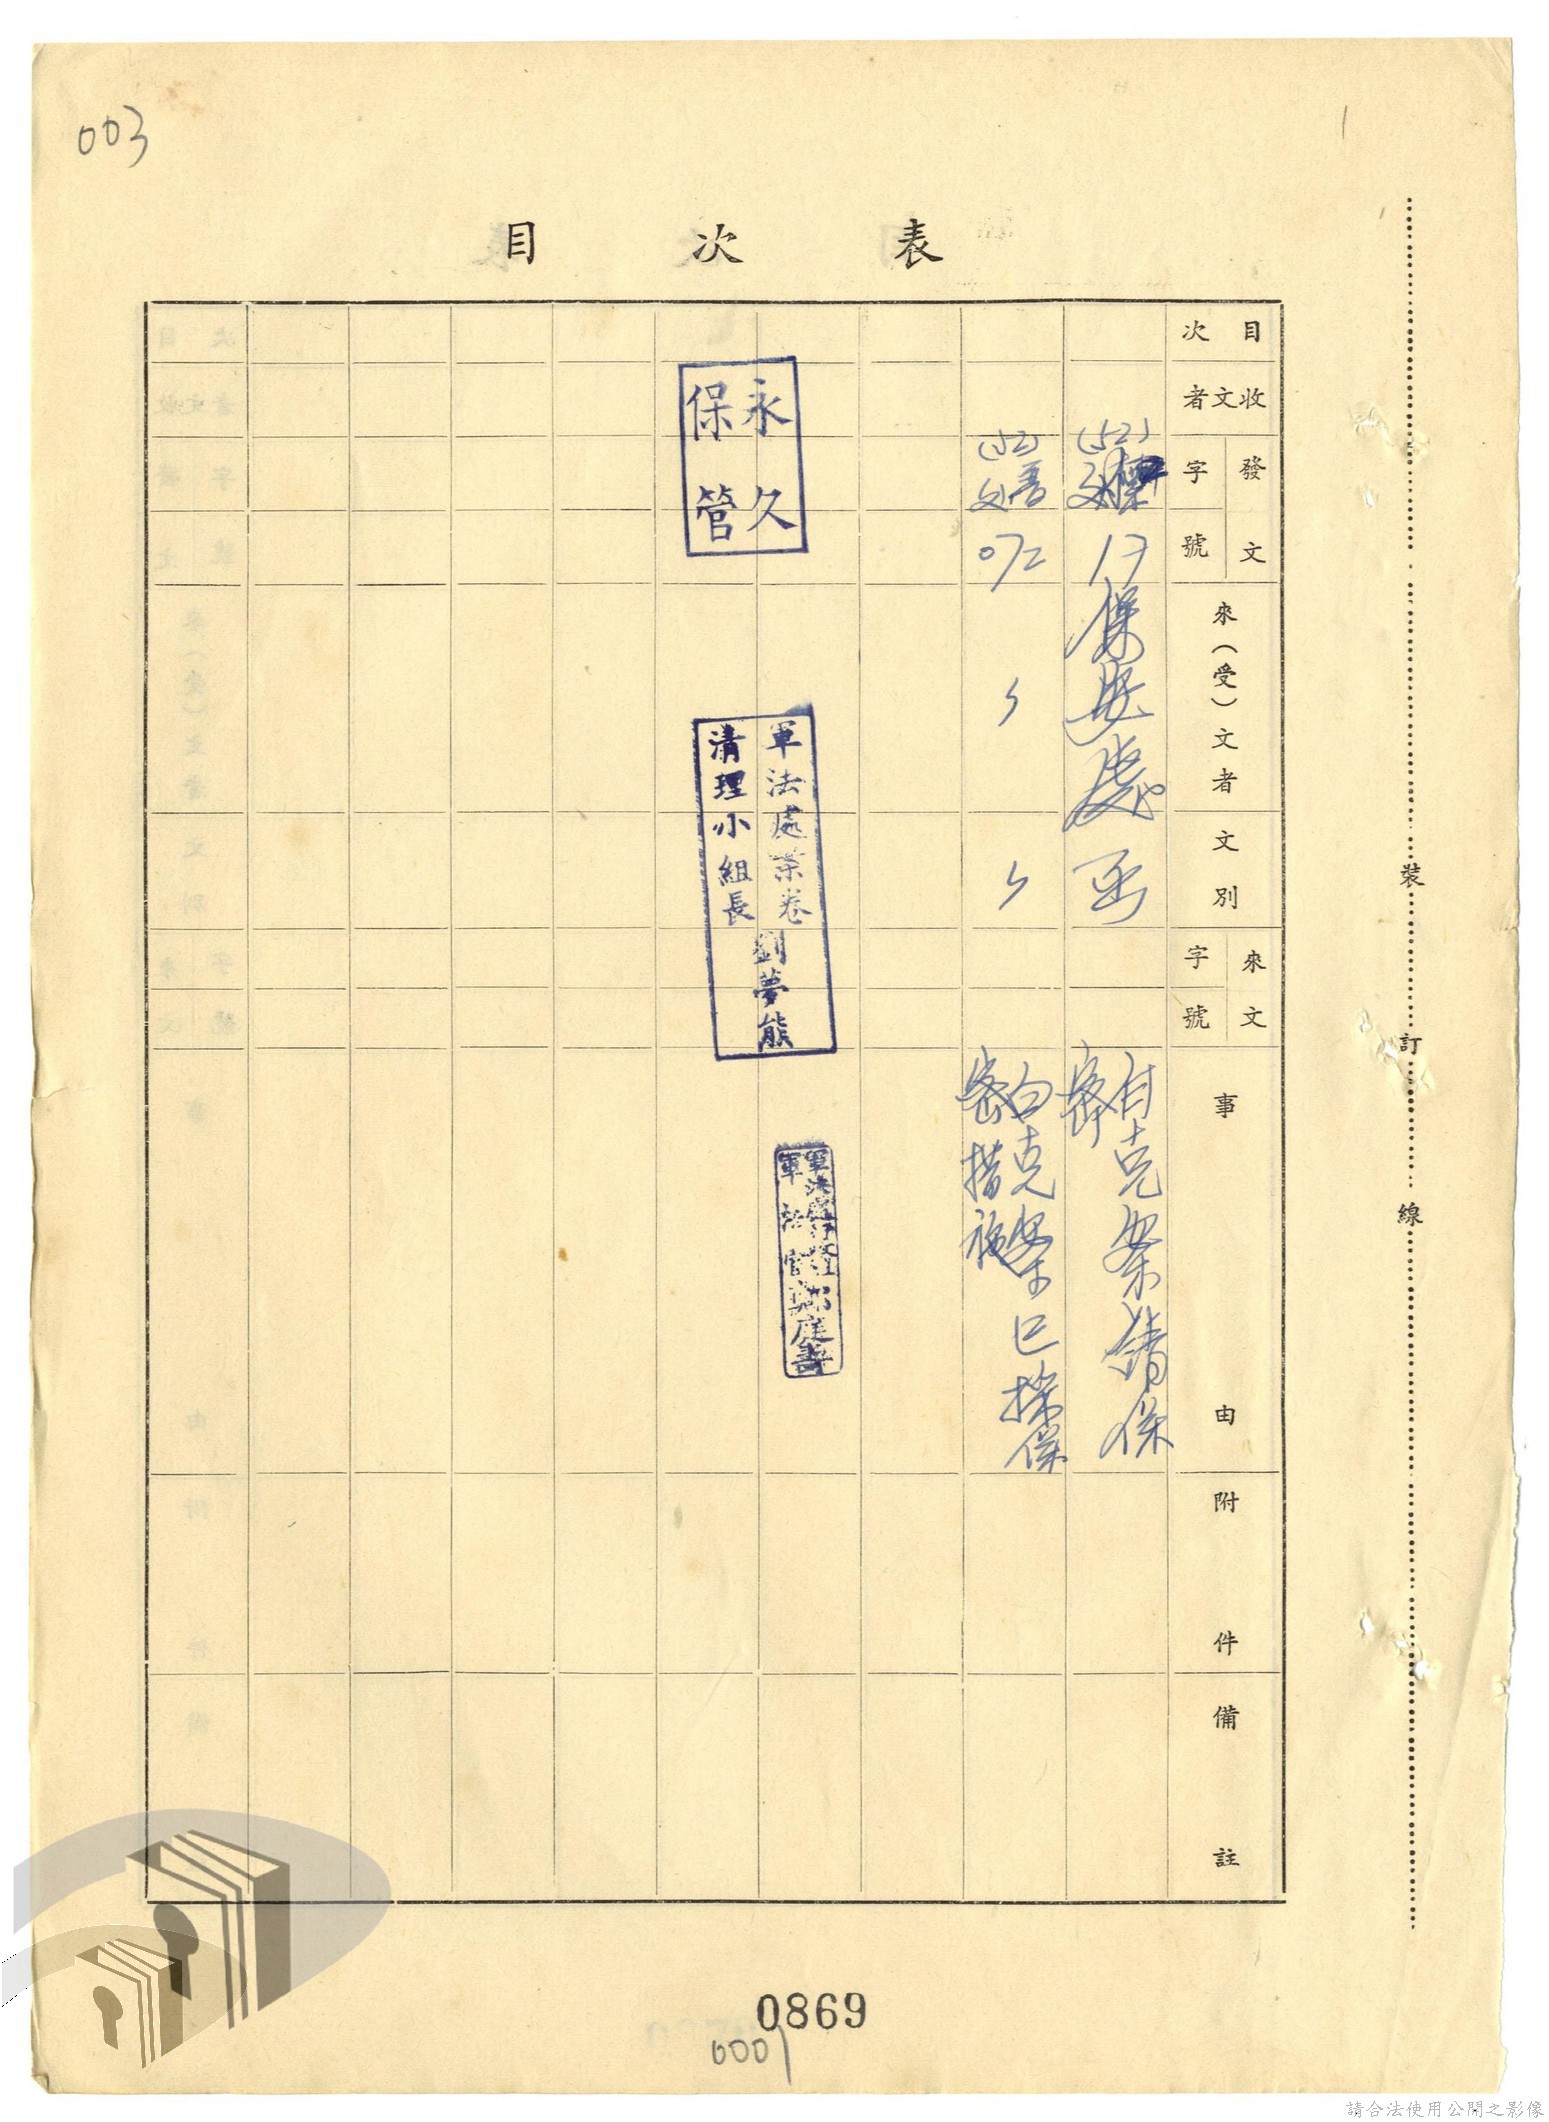 003
目次表
目次
收文者
發文
字號
來(受)文者
文別
來文
字號
事由
附件
備註
(52)
17
保安處
函
白克案請保密
(52)
072
白克案已採保密措施
永久
保管
軍法處案卷
清理小組長
劉夢熊
軍法官
裝訂線
0869
0001
請合法使用公開之影像